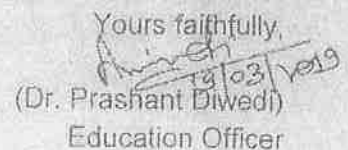 Yours faithfully,
19/03/2019
(Dr. Prashant Diwedi)
Education Officer